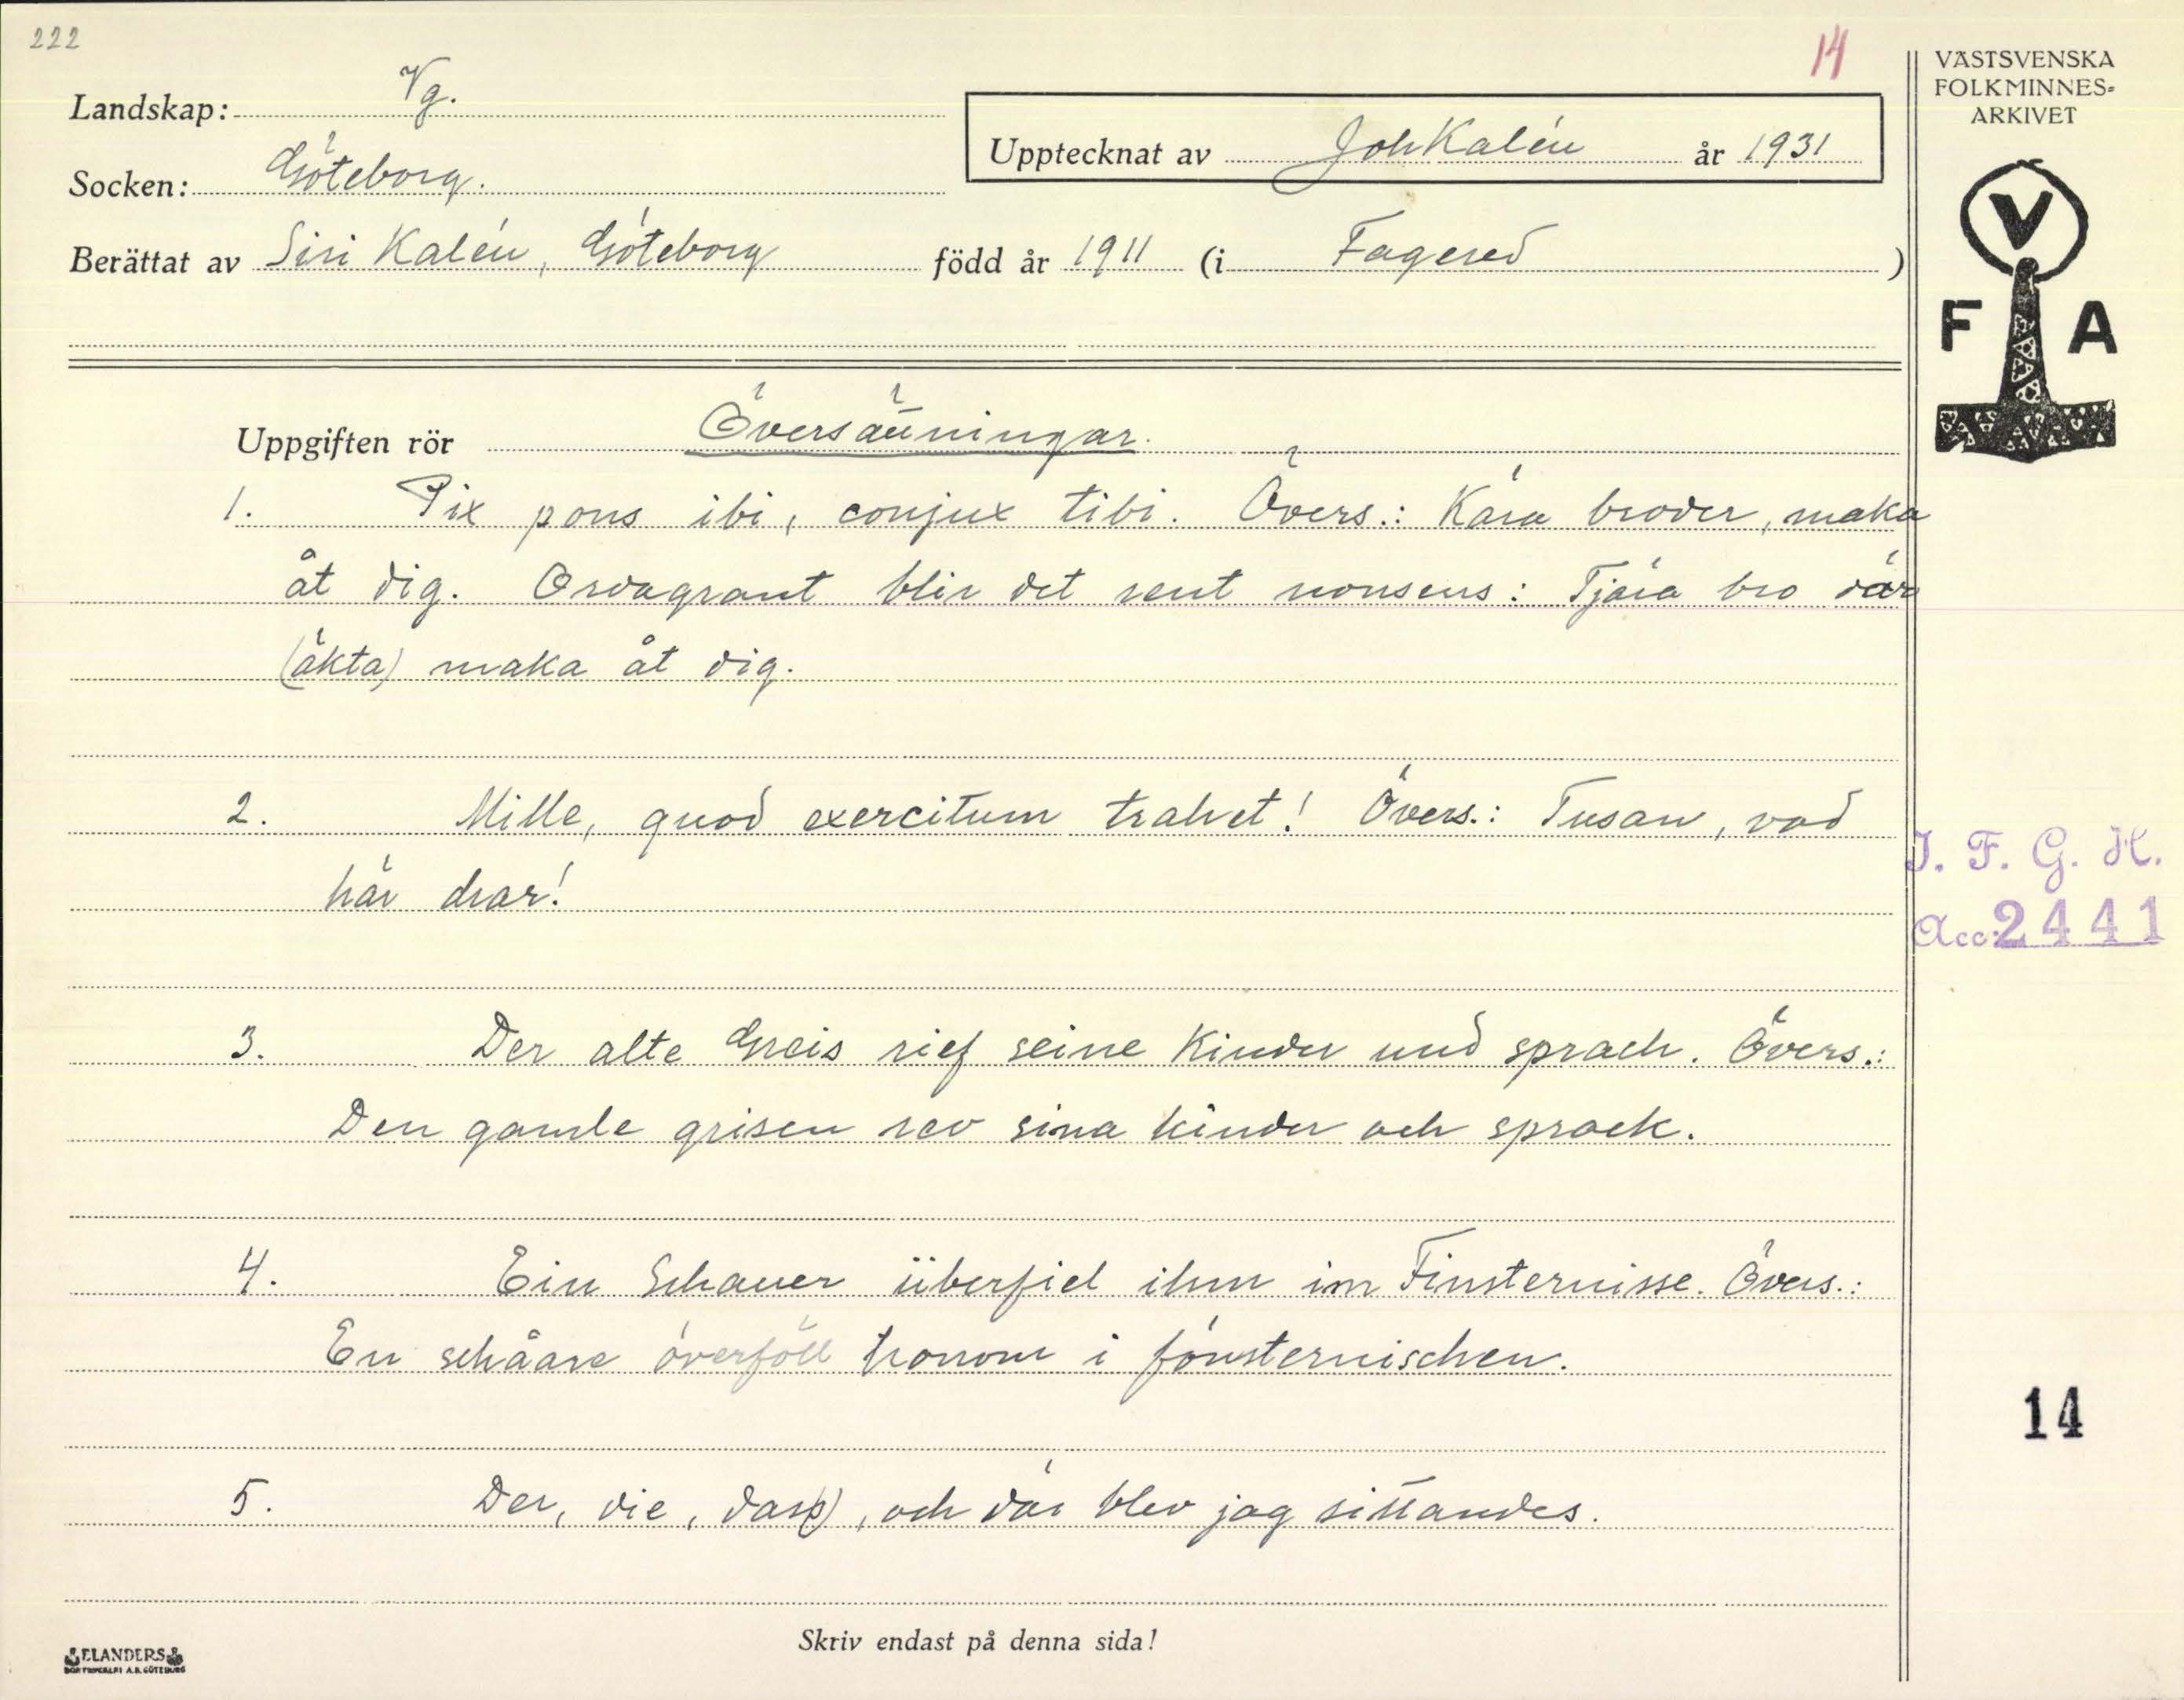 222
14
Landskap: Vg.
Upptecknat av Joh Kalén år 1931
Socken: Göteborg.
Berättat av Siri Kalén, Göteborg född år 1911 (i Fagered)
VÄSTSVENSKA
FOLKMINNES-
ARKIVET
V
F A
Uppgiften rör Översättningar.
1. Pix pons ibi, conjux tibi. Övers.: Kära broder, maka
åt dig. Ordagrant blir det rent nonsens: Tjära bro där
(äkta) maka åt dig.
2. Mille, quod exercitum trahet! Övers.: Tusan, vad
här drar!
J. F. G. H.
Acc: 2441
3. Der alte Greis rief seine Kinder und sprach. Övers.:
Den gamle grisen rev sina kinder och sprack.
4. Ein Schauer überfiel ihm im Finsternisse. Övers.:
En schåare överföll honom i fönsternischen.
14
5. Der, die, das(s), och där blev jag sittandes.
Skriv endast på denna sida!
ELANDERS
BOKTRYCKERI A.B. GÖTEBORG